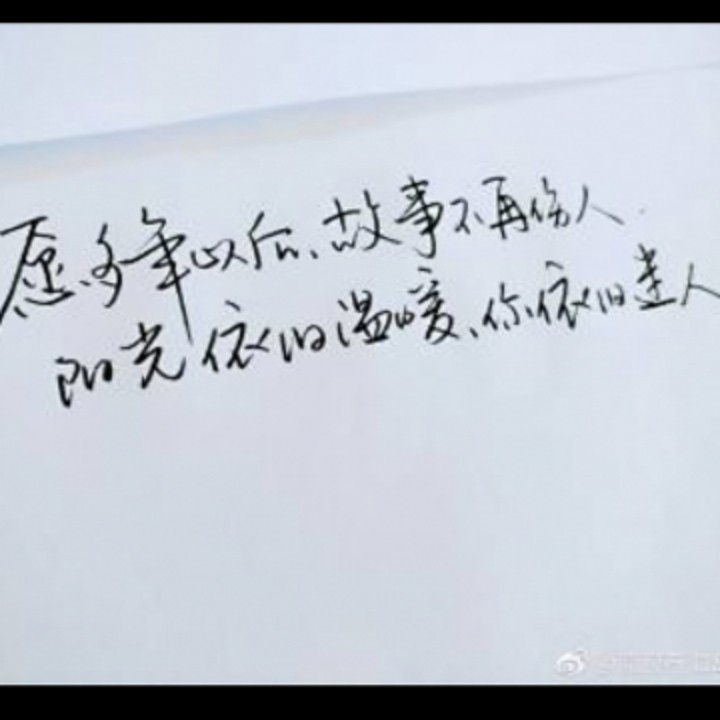 愿多年以后、故事不再伤人.
阳光依旧温暖、你依旧迷人